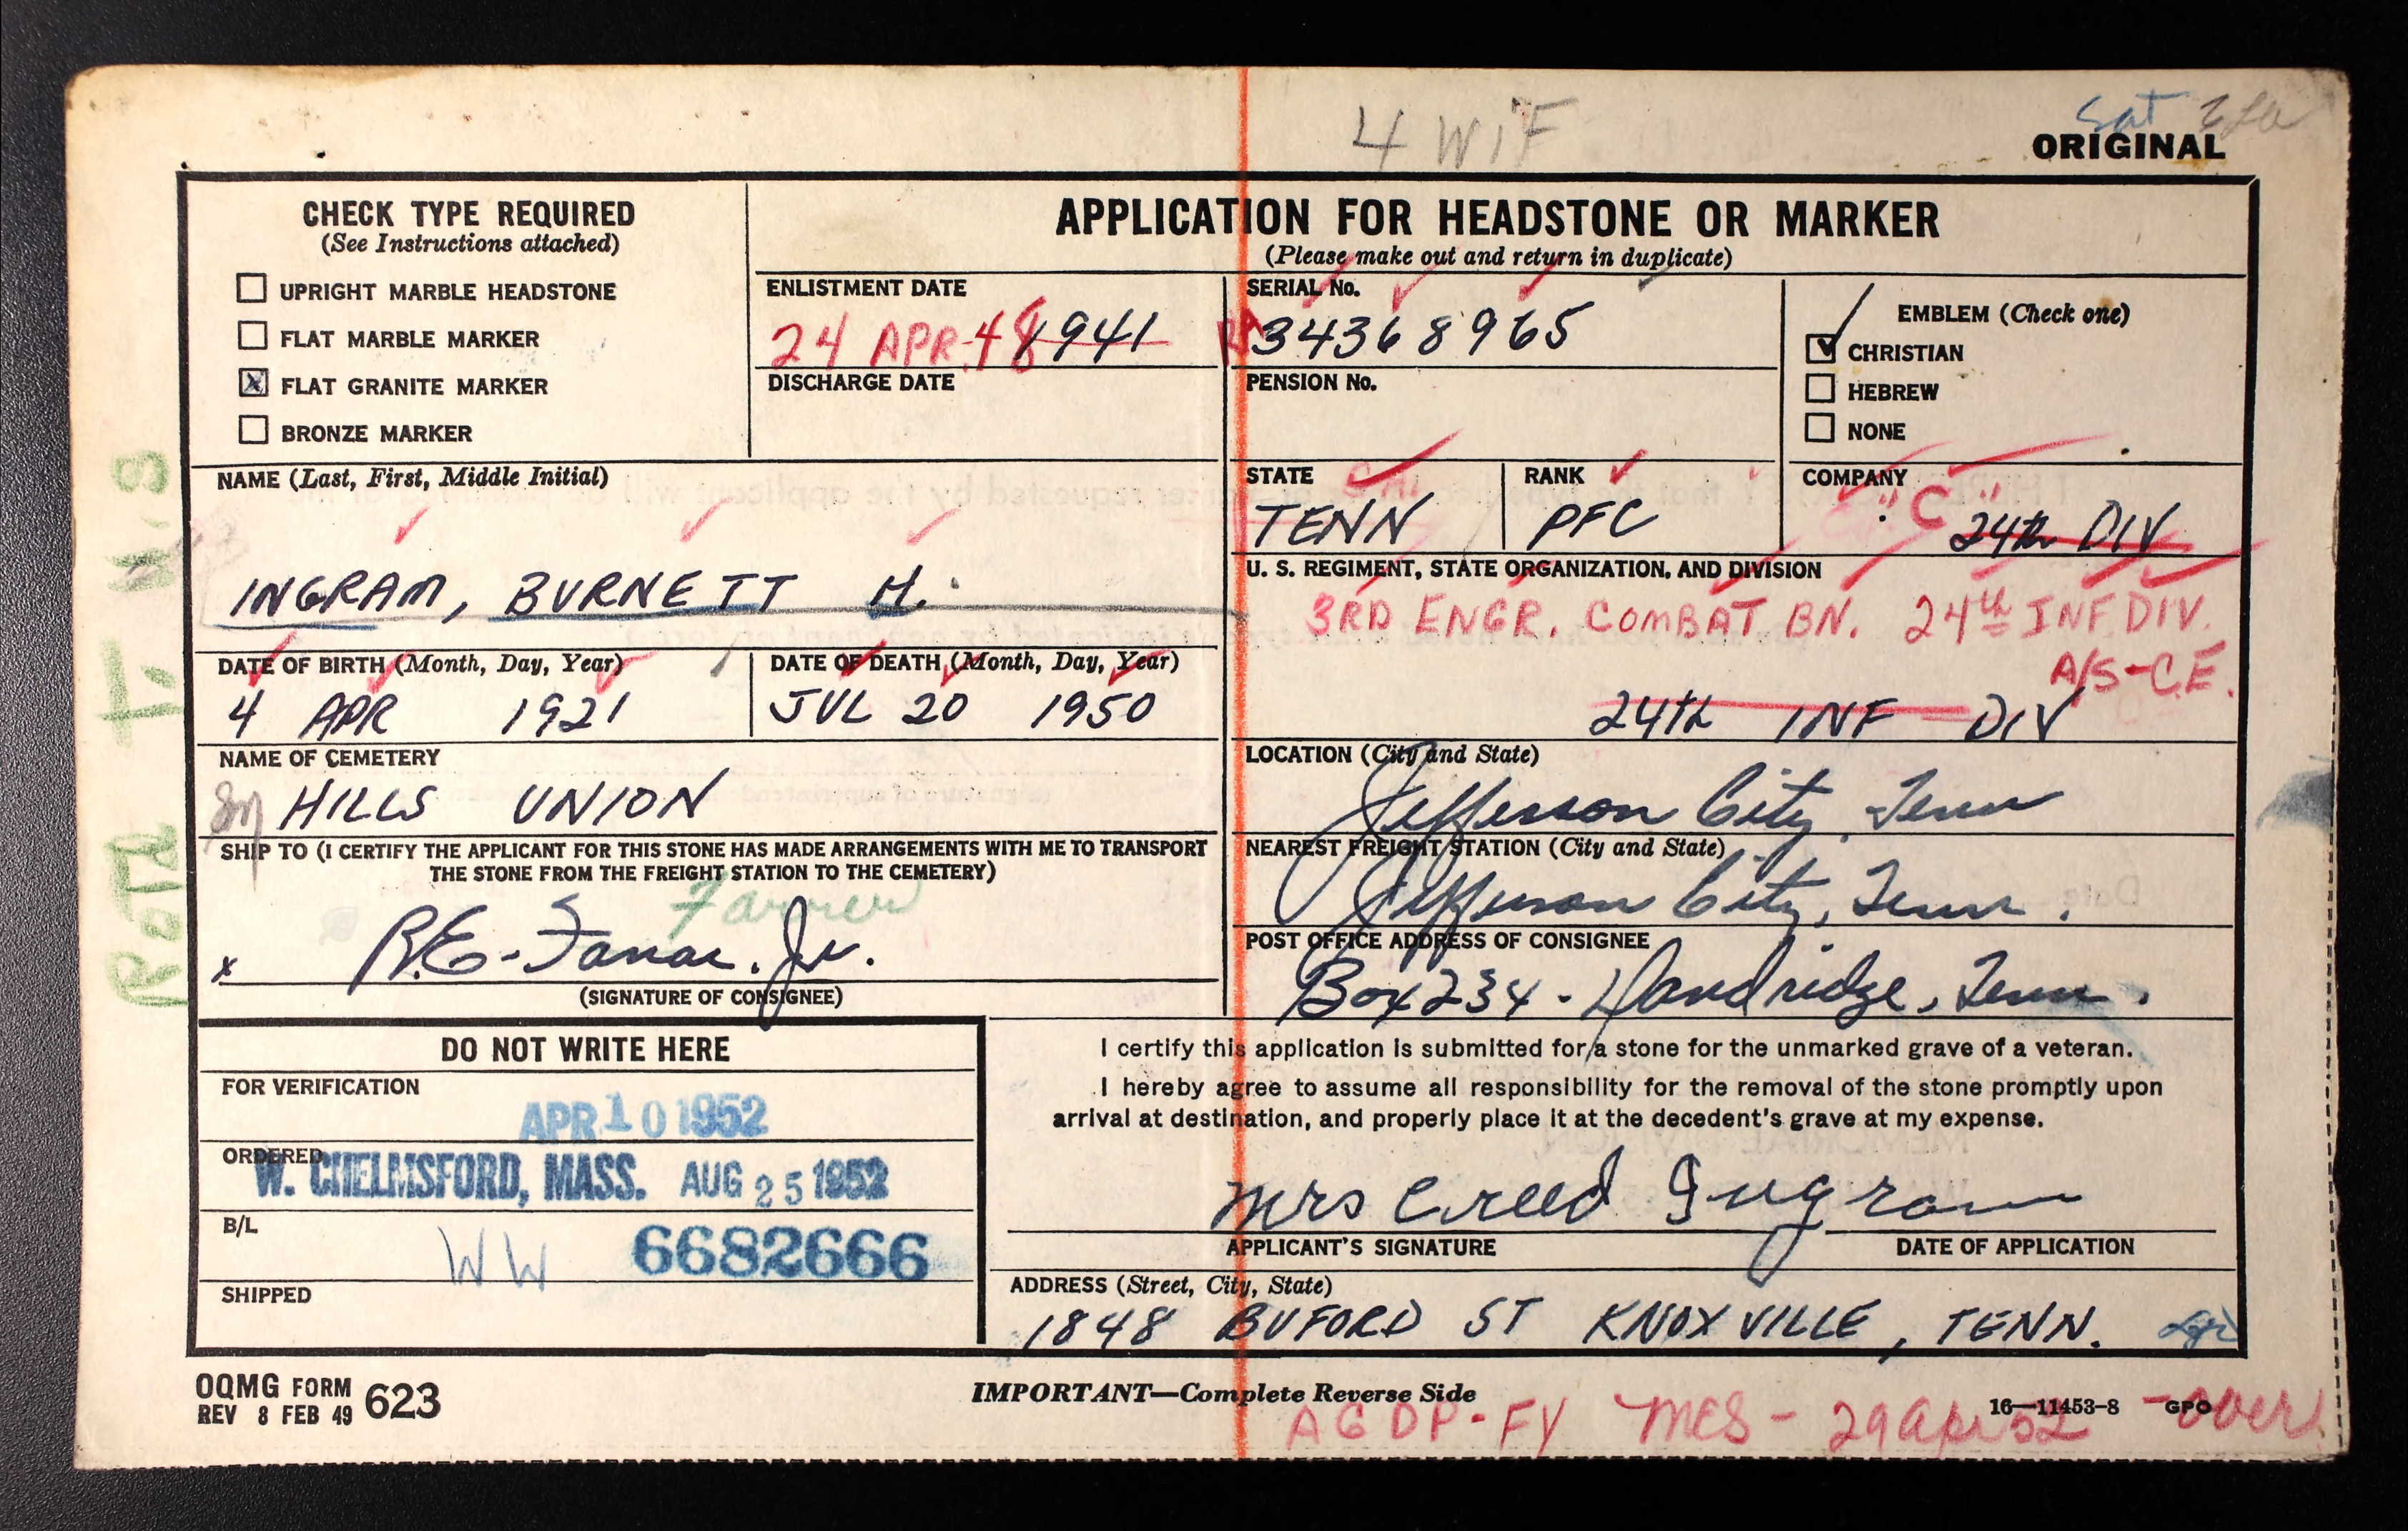 4 WIF
Sat
ORIGINAL
CHECK TYPE REQUIRED
(See Instructions attached)
UPRIGHT MARBLE HEADSTONE
FLAT MARBLE MARKER
X FLAT GRANITE MARKER
BRONZE MARKER
APPLICATION FOR HEADSTONE OR MARKER
(Please make out and return in duplicate)
ENLISTMENT DATE
24 APR 48 1941
DISCHARGE DATE
SERIAL No.
RA 34368965
PENSION No.
EMBLEM (Check one)
CHRISTIAN
HEBREW
NONE
NAME (Last, First, Middle Initial)
INGRAM, BURNETT H.
STATE
TENN
RANK
PFC
COMPANY
"C"
24th DIV
U. S. REGIMENT, STATE ORGANIZATION, AND DIVISION
3RD ENGR. COMBAT BN. 24th INF DIV.
A/S-C.E.
24th INF DIV
DATE OF BIRTH (Month, Day, Year)
4 APR 1921
DATE OF DEATH (Month, Day, Year)
JUL 20 1950
NAME OF CEMETERY
HILLS UNION
LOCATION (City and State)
Jefferson City, Tenn
SHIP TO (I CERTIFY THE APPLICANT FOR THIS STONE HAS MADE ARRANGEMENTS WITH ME TO TRANSPORT
THE STONE FROM THE FREIGHT STATION TO THE CEMETERY)
Farrar
x R.E. Farrar. Jr.
(SIGNATURE OF CONSIGNEE)
NEAREST FREIGHT STATION (City and State)
Jefferson City, Tenn.
POST OFFICE ADDRESS OF CONSIGNEE
Box 234 - Dandridge, Tenn.
DO NOT WRITE HERE
FOR VERIFICATION
APR 10 1952
ORDERED
W. CHELMSFORD, MASS. AUG 25 1952
B/L
WW 6682666
SHIPPED
I certify this application is submitted for a stone for the unmarked grave of a veteran.
I hereby agree to assume all responsibility for the removal of the stone promptly upon
arrival at destination, and properly place it at the decedent's grave at my expense.
Mrs Creed Ingram
APPLICANT'S SIGNATURE
DATE OF APPLICATION
ADDRESS (Street, City, State)
1848 BUFORD ST KNOXVILLE, TENN.
OQMG FORM 623
REV 8 FEB 49
IMPORTANT—Complete Reverse Side
16—11453-8 GPO
AGDP-FY MES - 29 Apr 52 - over